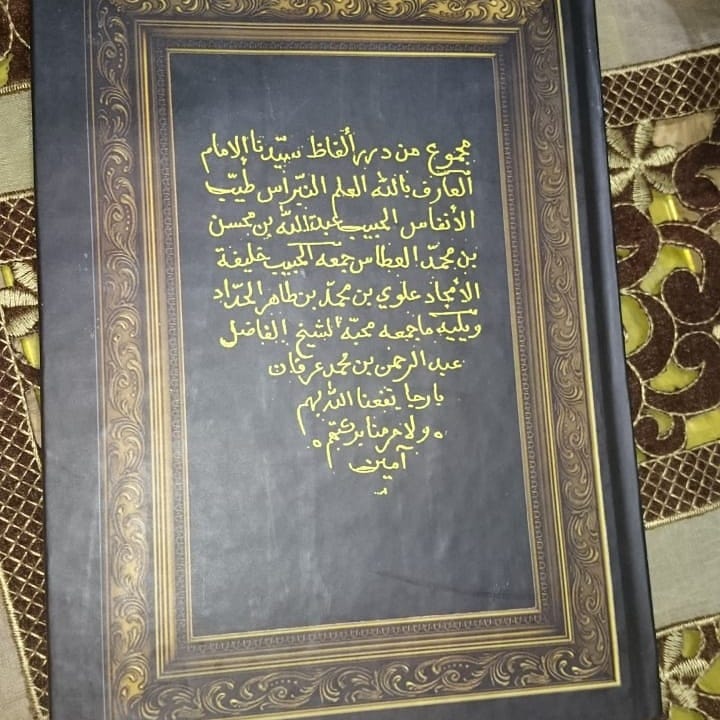 مجموع من درر ألفاظ سيّدنا الإمام
العارف بالله العلم النبّراس طيّب
الأنفاس الحبيب عبد الله بن محسن
بن محمّد العطاس جمعه الحبيب خليفة
الأمجاد علوي بن محمّد بن طاهر الحدّاد
ويليه ما جمعه محبّه الشيخ الفاضل
عبد الرحمن بن محمد عرفان
بارجا ينفعنا الله بهم
ولا حرمنا بركتهم
آمين